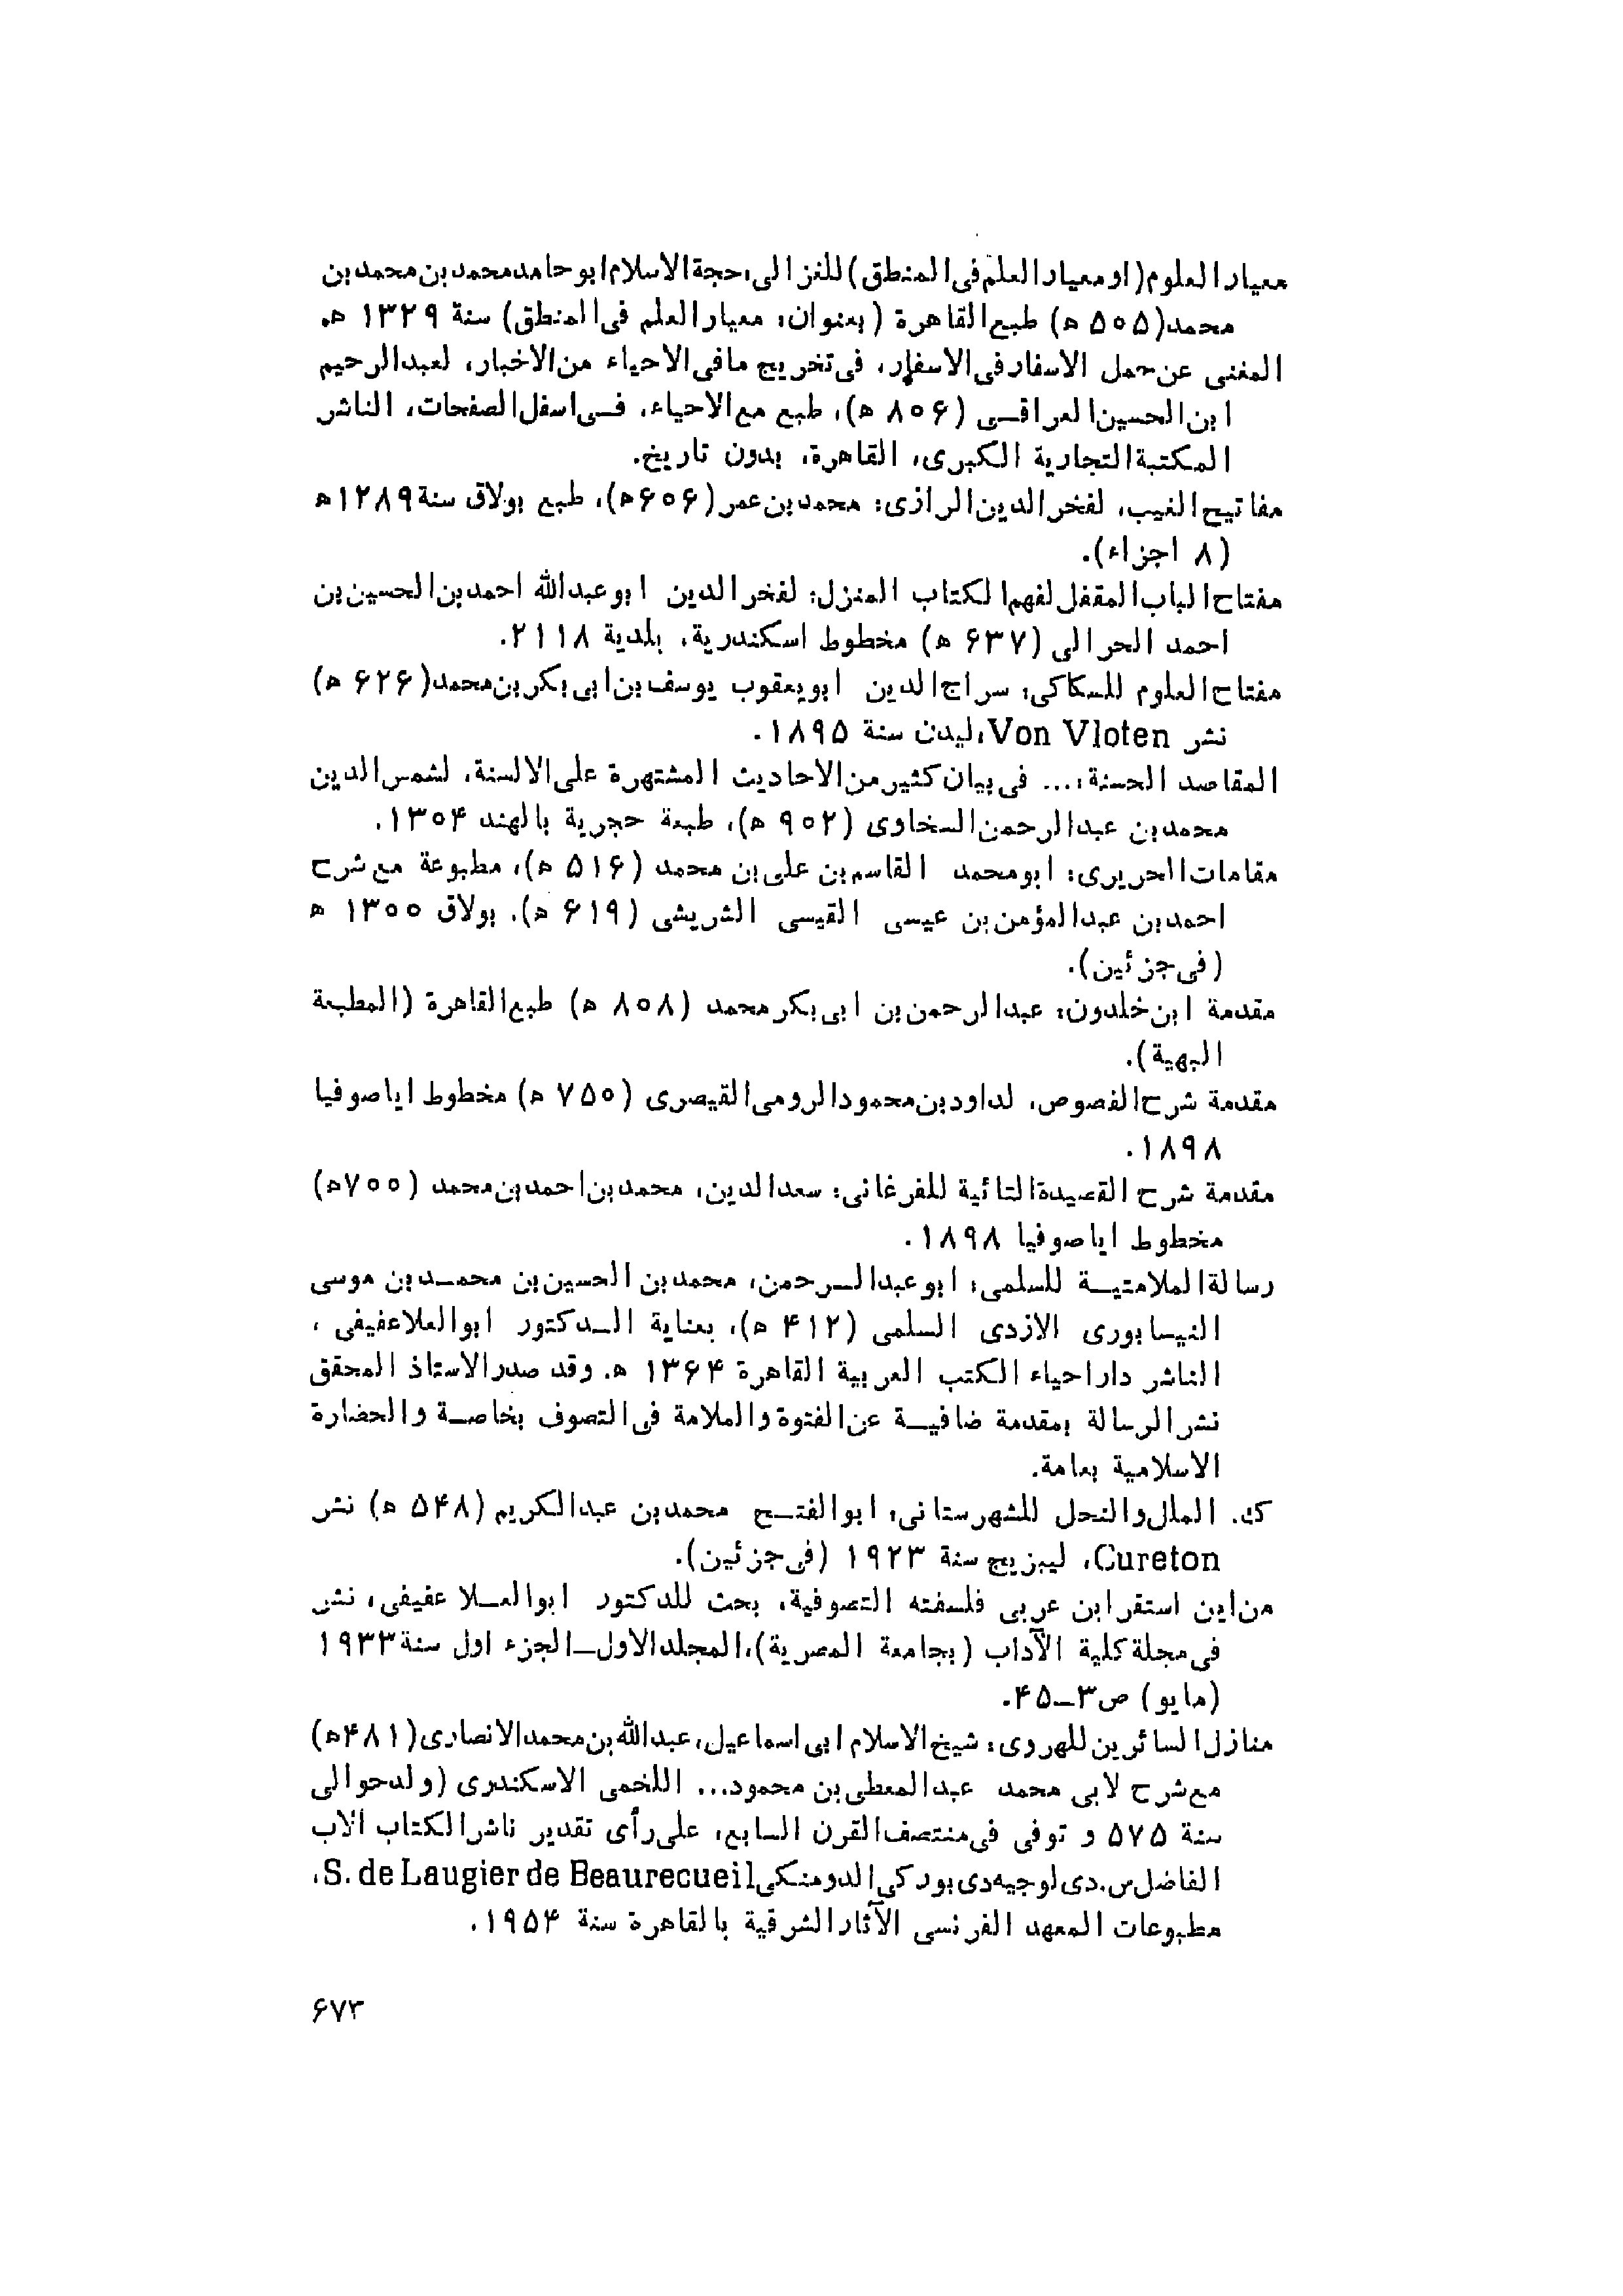 معیار العلوم (او معیار العلم فی المنطق) للغزالی، حجة الاسلام ابو حامد محمد بن محمد بن
محمد (۵۰۵ ه) طبع القاهرة (بعنوان: معیار العلم فی المنطق) سنة ۱۳۲۹ ه.
المغنی عن حمل الاسفار فی الاسفار، فی تخریج ما فی الاحیاء من الاخبار، لعبد الرحیم
ابن الحسین العراقی (۸۰۶ ه)، طبع مع الاحیاء، فی اسفل الصفحات، الناشر
المکتبة التجاریة الکبری، القاهرة، بدون تاریخ.
مفاتیح الغیب، لفخر الدین الرازی: محمد بن عمر (۶۰۶ه)، طبع بولاق سنة ۱۲۸۹ه
(۸ اجزاء).
مفتاح الباب المقفل لفهم الکتاب المنزل: لفخر الدین ابو عبدالله احمد بن الحسین بن
احمد الحرالی (۶۳۷ ه) مخطوط اسکندریة، بلدیة ۲۱۱۸.
مفتاح العلوم للسکاکی: سراج الدین ابو یعقوب یوسف بن ابی بکر بن محمد (۶۲۶ ه)
نشر Von Vloten، لیدن سنة ۱۸۹۵.
المقاصد الحسنة، ... فی بیان کثیر من الاحادیث المشتهرة علی الالسنة، لشمس الدین
محمد بن عبد الرحمن السخاوی (۹۰۲ ه)، طبعة حجریة بالهند ۱۳۵۴.
مقامات الحریری: ابو محمد القاسم بن علی بن محمد (۵۱۶ ه)، مطبوعة مع شرح
احمد بن عبد المؤمن بن عیسی القیسی الشریشی (۶۱۹ ه)، بولاق ۱۳۰۰ ه
(فی جزئین).
مقدمة ابن خلدون: عبد الرحمن بن ابی بکر محمد (۸۰۸ ه) طبع القاهرة (المطبعة
البهیة).
مقدمة شرح الفصوص، لداود بن محمود الرومی القیصری (۷۵۰ ه) مخطوط ایاصوفیا
۱۸۹۸.
مقدمة شرح القصیدة التائیة للفرغانی: سعد الدین، محمد بن احمد بن محمد (۷۰۰ه)
مخطوط ایاصوفیا ۱۸۹۸.
رسالة الملامتیة للسلمی: ابو عبد الرحمن، محمد بن الحسین بن محمد بن موسی
النیسابوری الازدی السلمی (۴۱۲ ه)، بعنایة الدکتور ابو العلا عفیفی ،
الناشر دار احیاء الکتب العربیة القاهرة ۱۳۶۴ ه. وقد صدر الاستاذ المحقق
نشر الرسالة بمقدمة ضافیة عن الفتوة والملامة فی التصوف بخاصة والحضارة
الاسلامیة بعامة.
ک. الملل والنحل للشهرستانی: ابو الفتح محمد بن عبد الکریم (۵۴۸ ه) نشر
Cureton، لیبزیج سنة ۱۹۲۳ (فی جزئین).
من این استقر ابن عربی فلسفته التصوفیة، بحث للدکتور ابو العلا عفیفی، نشر
فی مجلة کلیة الآداب (بجامعة المصریة)، المجلد الاول ـ الجزء اول سنة ۱۹۳۳
(مایو) ص ۳ـ۴۵.
منازل السائرین للهروی: شیخ الاسلام ابی اسماعیل، عبدالله بن محمد الانصاری (۴۸۱ه)
مع شرح لابی محمد عبد المعطی بن محمود... اللخمی الاسکندری (ولد حوالی
سنة ۵۷۵ و توفی فی منتصف القرن السابع، علی رأی تقدیر ناشر الکتاب الاب
الفاضل س. دی لوجیه دی بورکی الدومنکی S. de Laugier de Beaurecueil،
مطبوعات المعهد الفرنسی الآثار الشرقیة بالقاهرة سنة ۱۹۵۴.
۶۷۳